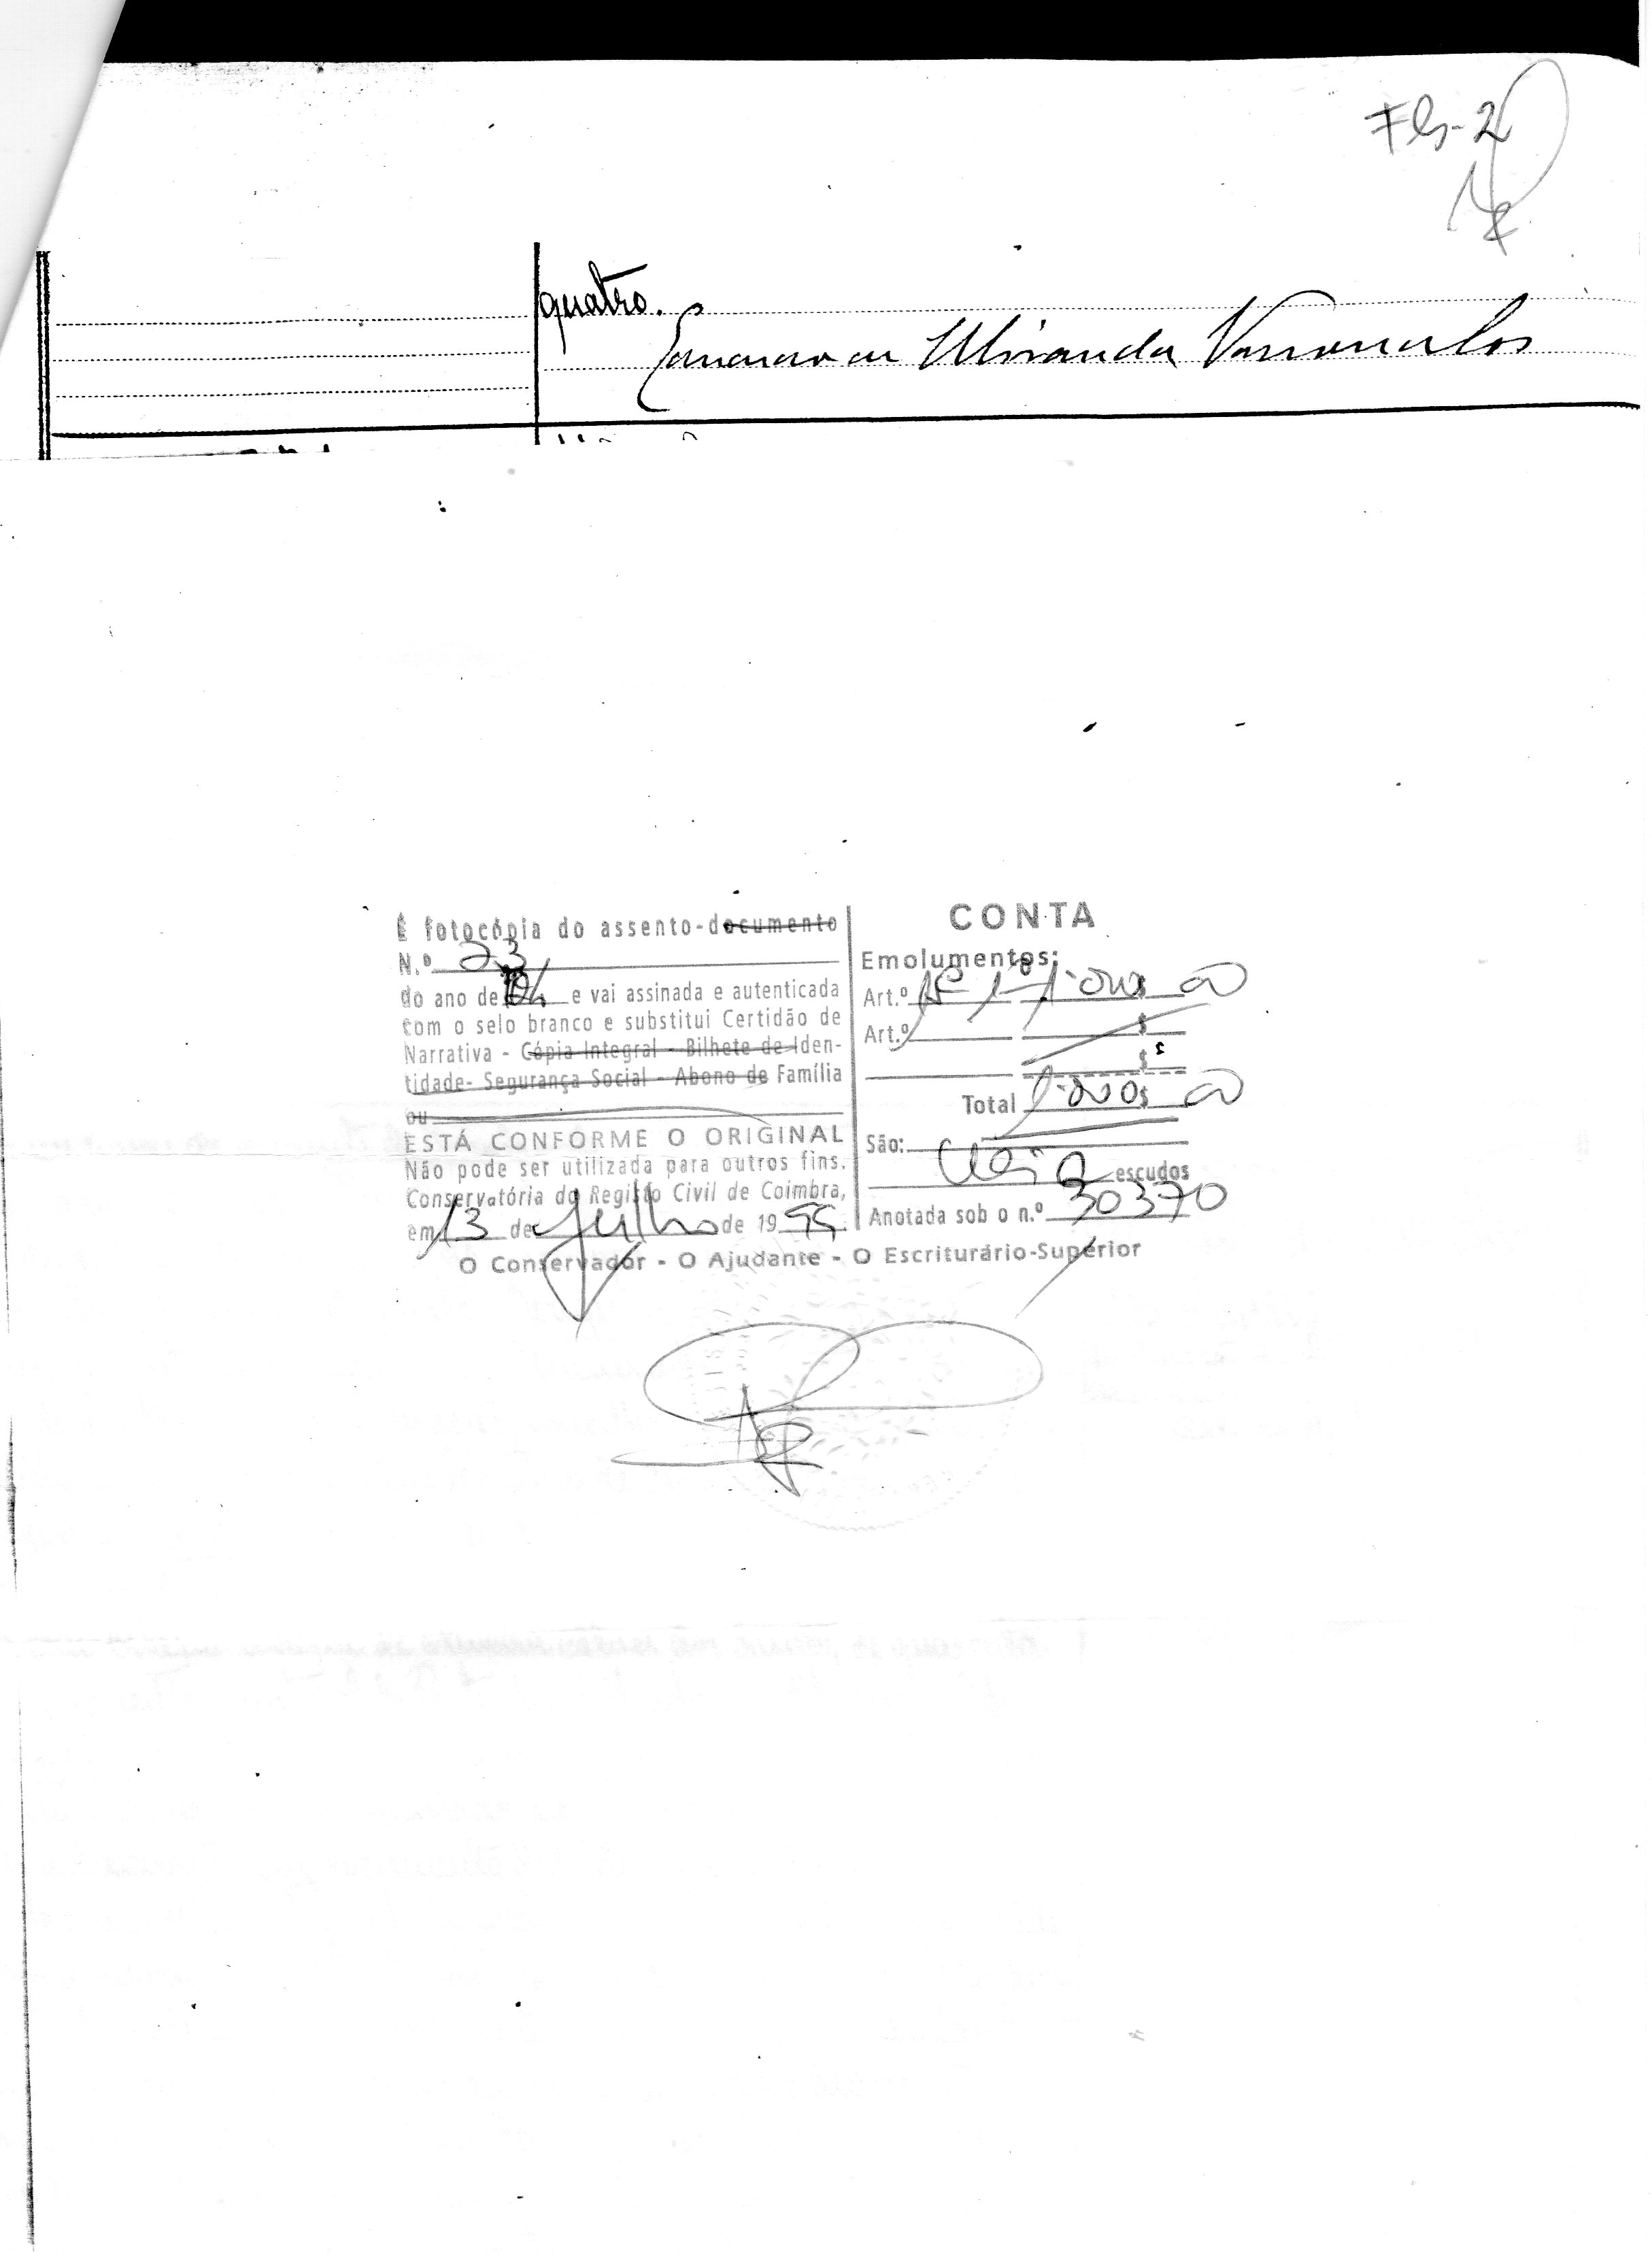 Fls-2
quatro.
Miranda Vasconcelos
É fotocópia do assento-documento
N.º 23
do ano de e vai assinada e autenticada
com o selo branco e substitui Certidão de
Narrativa - Cópia Integral - Bilhete de Iden-
tidade- Segurança Social - Abono de Família
ou
ESTÁ CONFORME O ORIGINAL
Não pode ser utilizada para outros fins.
Conservatória do Registo Civil de Coimbra,
em 13 de Julho de 19
CONTA
Emolumentos:
Art.º
Art.º $
$
Total
São: escudos
Anotada sob o n.º 30370
O Conservador - O Ajudante - O Escriturário-Superior